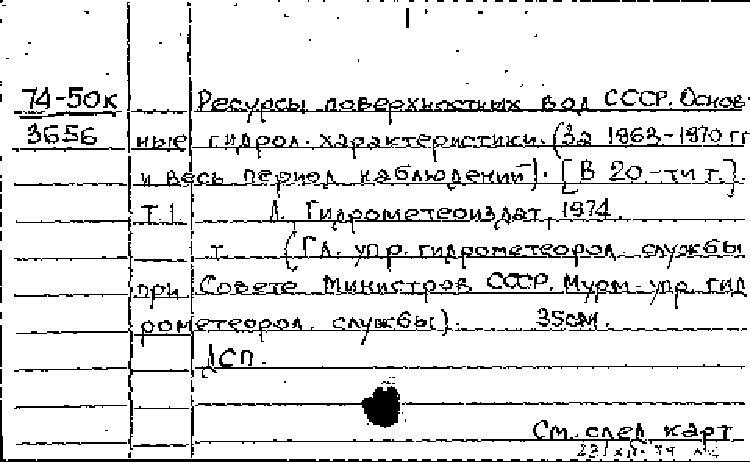 74-50к Ресурсы поверхностных вод СССР. Основ-
3656 ные гидрол. характеристики. (За 1963-1970 гг
и весь период наблюдений). [В 20-ти т.].
Т.1. Л. Гидрометеоиздат, 1974.
т. (Гл. упр. гидрометеорол. службы
при Совете Министров СССР. Мурм. упр. гид
рометеорол. службы). 35см.
ДСП.
См. след карт